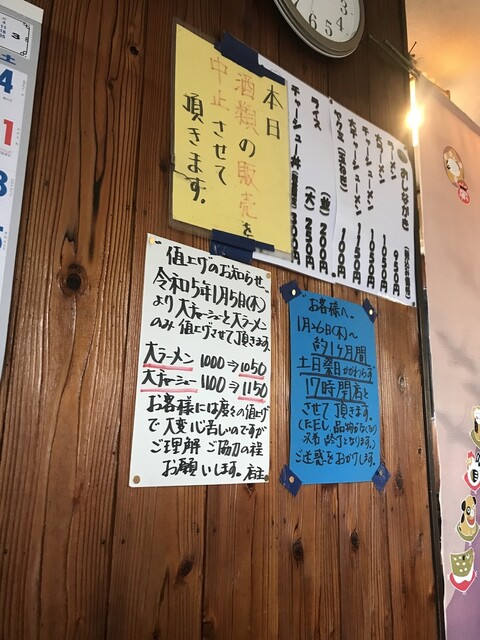 本日
酒類の販売を
中止させて
頂きます。
おしながき
ラーメン 950円
大ラーメン 1050円
チャーシューメン 1050円
大チャーシューメン 1150円
ヤクミ(玉ねぎ) 100円
ライス (並) 200円
(大) 250円
チャーシュー丼 300円
"値上げのお知らせ"
令和5年1月5日(木)
より大チャーシューと大ラーメン
のみ値上げさせて頂きます
大ラーメン 1000⇒1050
大チャーシュー 1100⇒1150
お客様には度々の値上げ
で大変心苦しいのですが
ご理解 ご協力の程
お願いします。店主
"お客様へ。
1月26日(木)〜
約1ヶ月間
土日祭日かかわらず
17時閉店と
させて頂きます。
(ただし、品物がなくなり
次第終了となります。)
ご迷惑をおかけします。